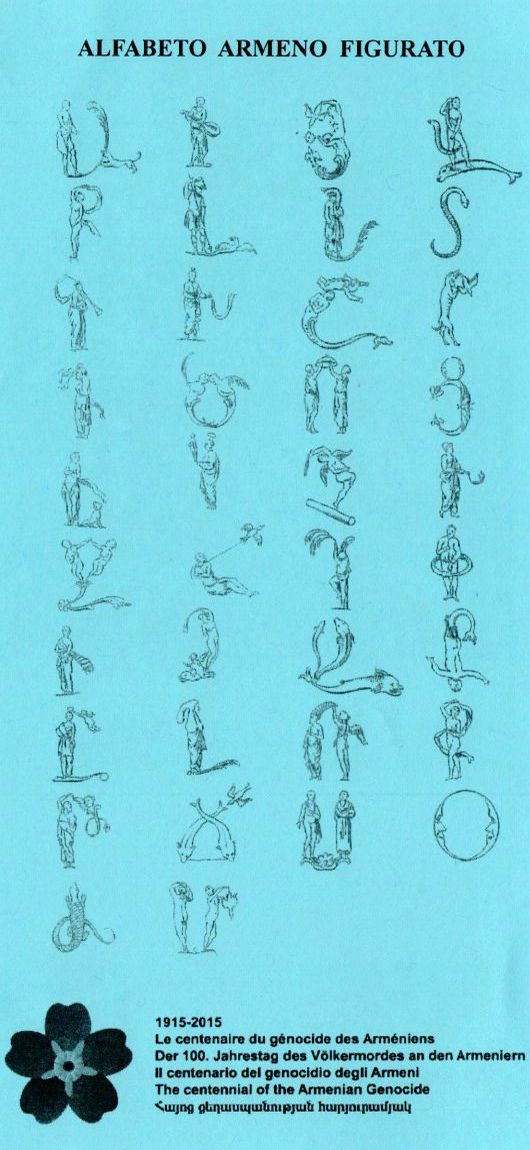 ALFABETO ARMENO FIGURATO
1915-2015
Le centenaire du génocide des Arméniens
Der 100. Jahrestag des Völkermordes an den Armeniern
Il centenario del genocidio degli Armeni
The centennial of the Armenian Genocide
Հայոց ցեղասպանության հարյուրամյակ